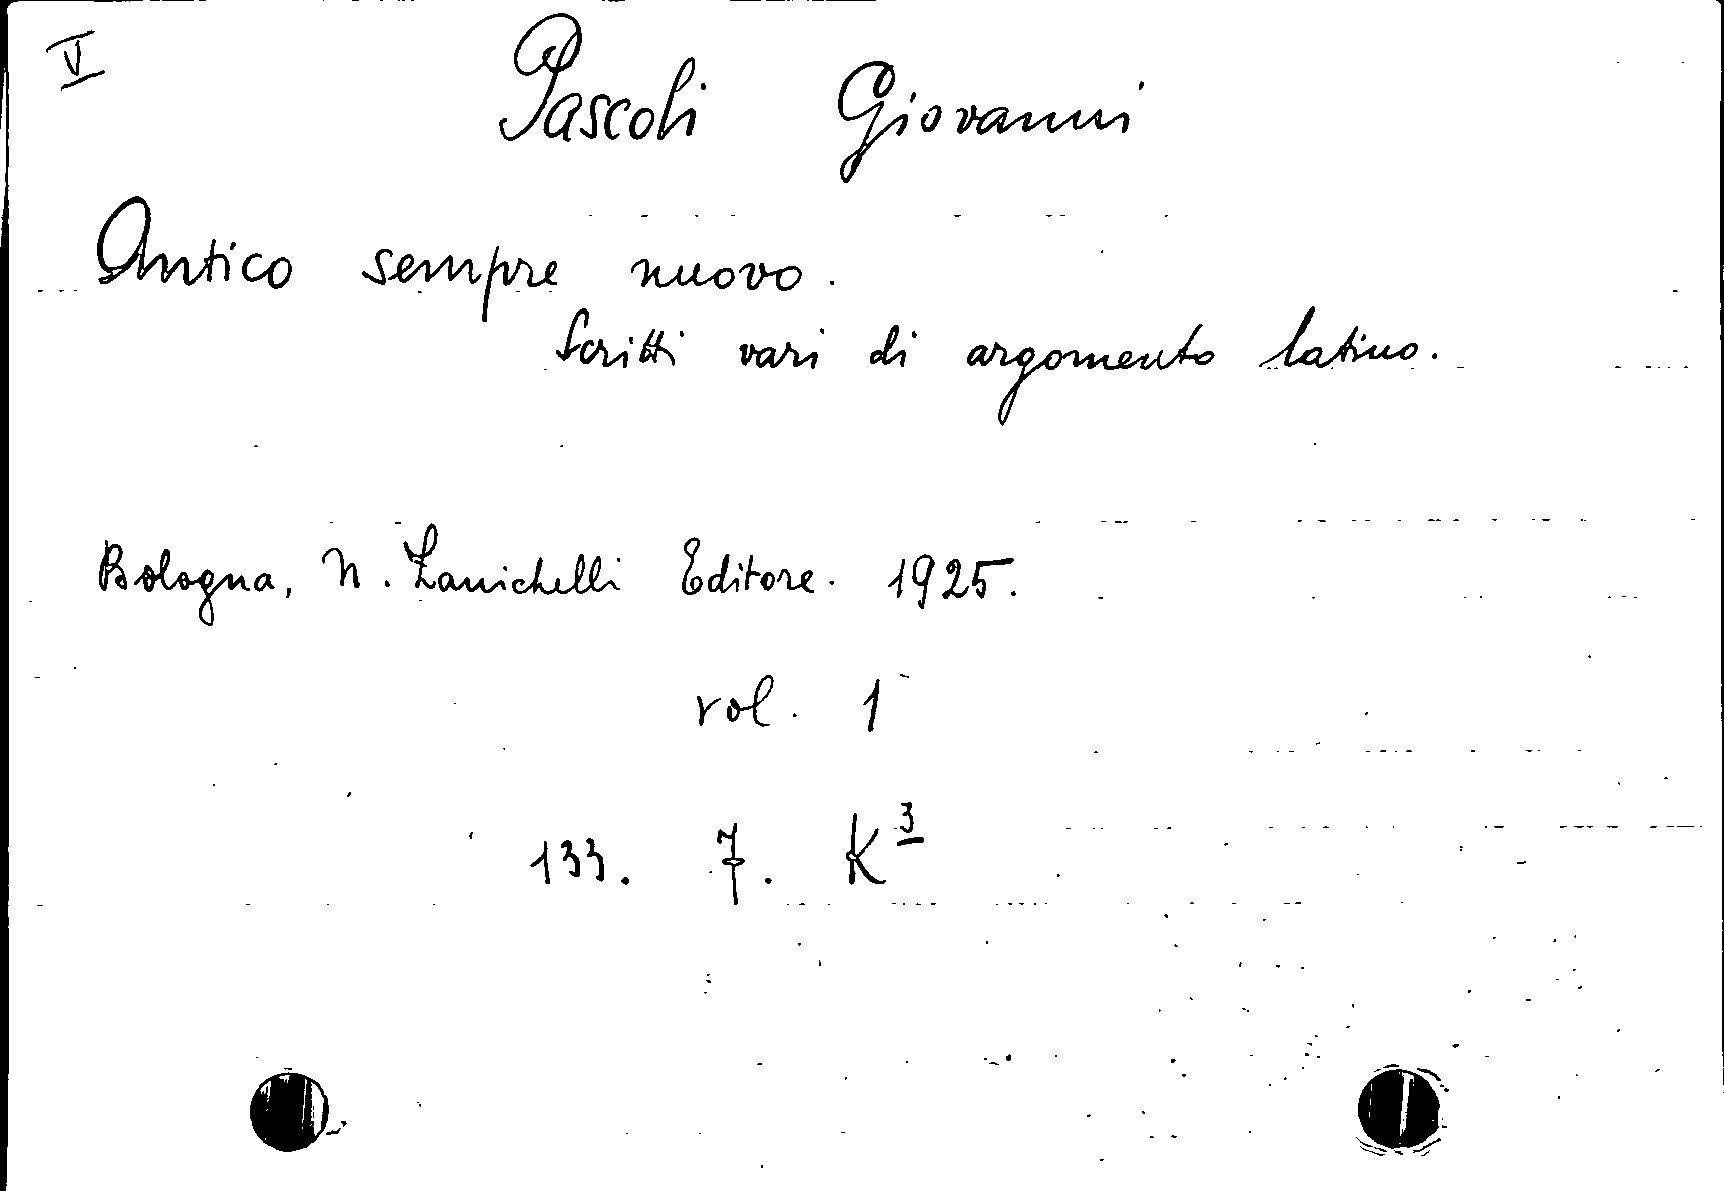 V
Pascoli Giovanni
Antico sempre nuovo.
Scritti vari di argomento latino.
Bologna, N. Zanichelli Editore. 1925.
vol. 1
133. 7. K³